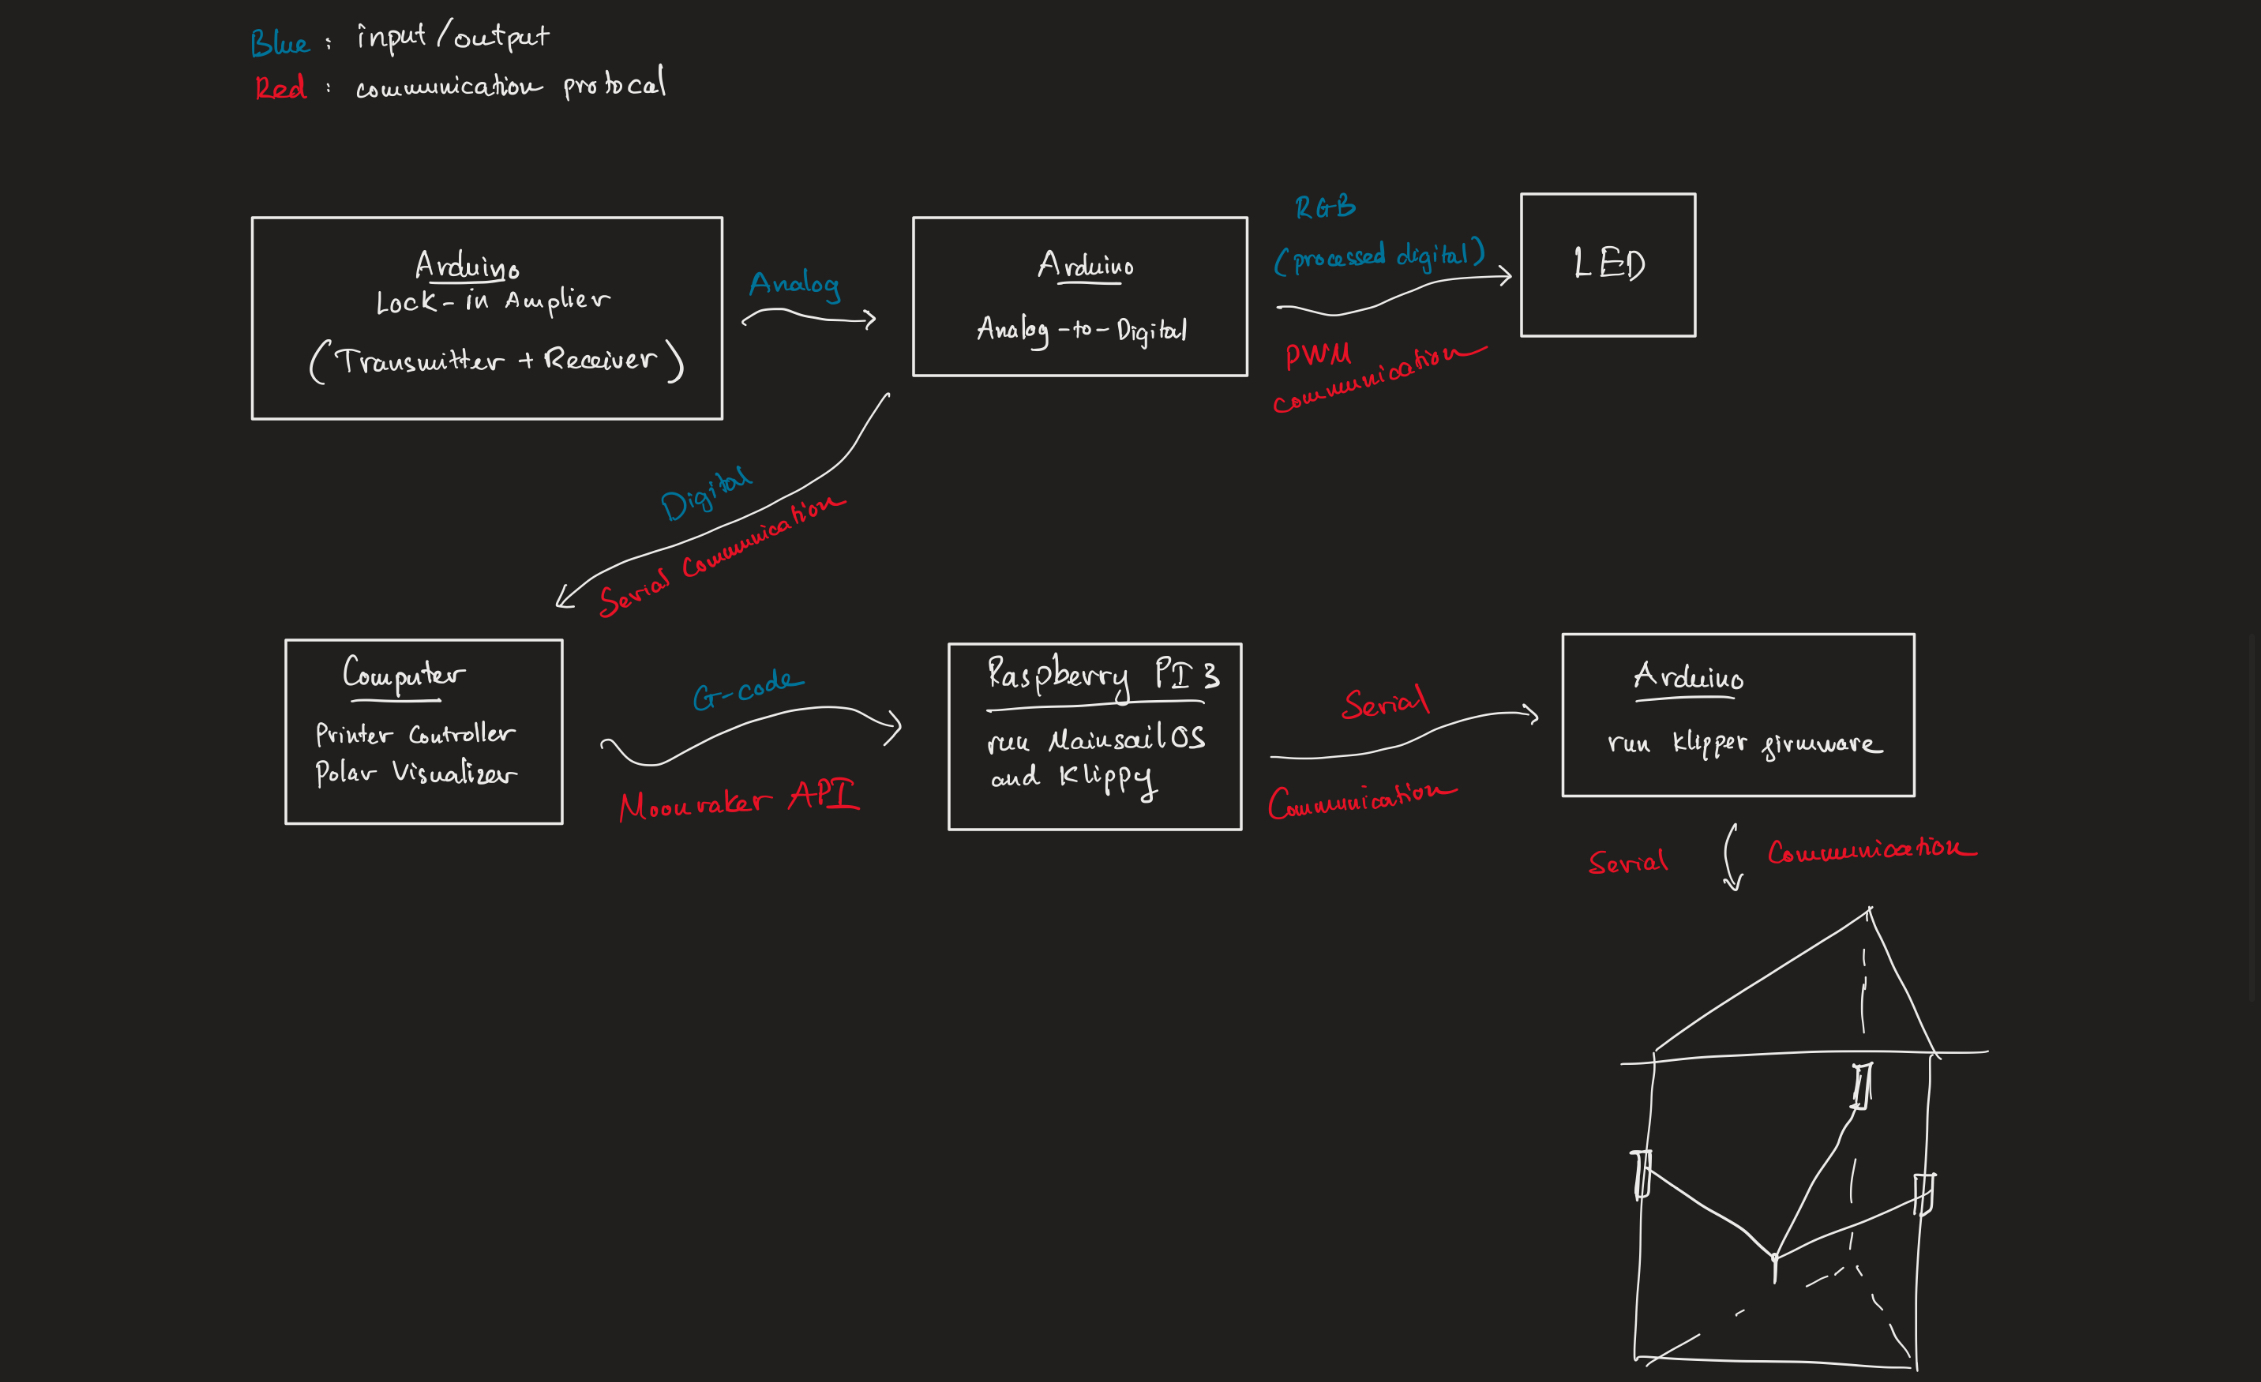 Blue : input/output
Red : communication protocal
Arduino
Lock-in Amplier
(Transmitter + Receiver)
Analog
Arduino
Analog-to-Digital
RGB
(processed digital)
PWM
communication
LED
Digital
Serial Communication
Computer
Printer Controller
Polar Visualizer
G-code
Moonraker API
Raspberry PI 3
run MainsailOS
and Klippy
Serial
Communication
Arduino
run Klipper firmware
Serial Communication